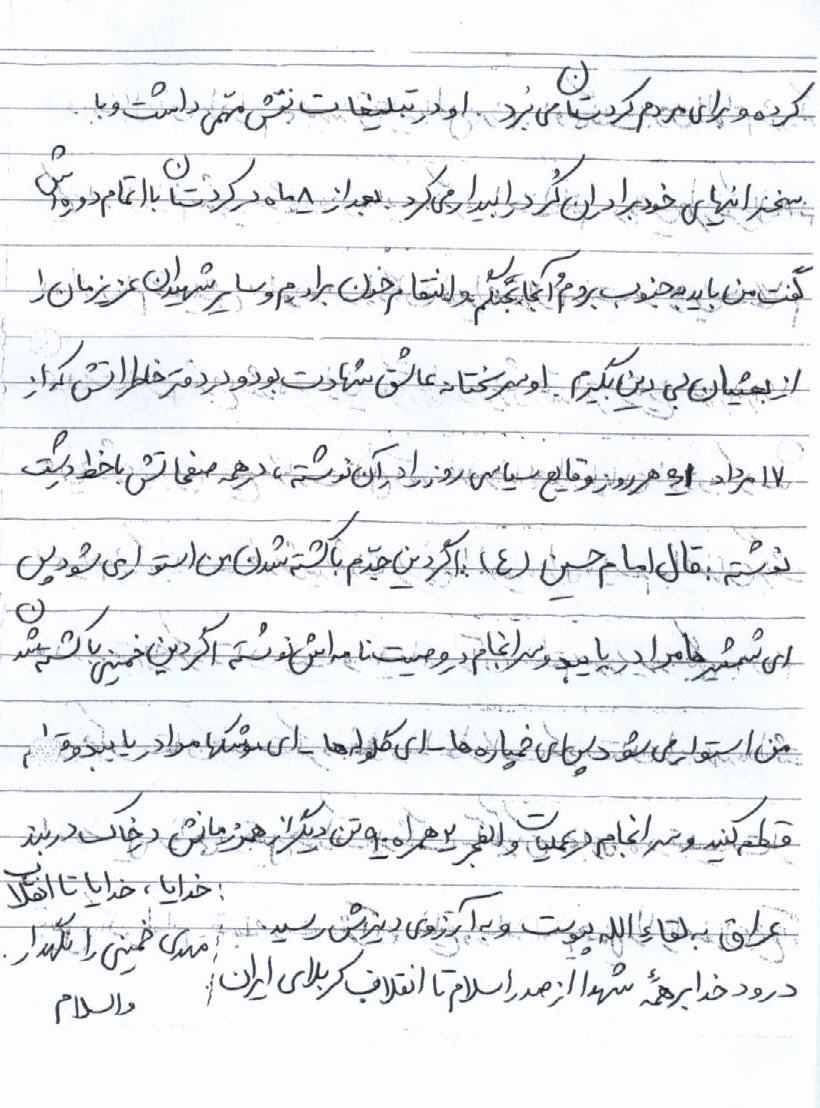 کرده و برای مردم کردستان می برد. او در تبلیغات نقش مهمی داشت و با
سخنرانیهای خود برادران کُرد را بیدار می کرد. بعد از ۸ ماه در کردستان با اتمام دوره اش
گفت من باید به جنوب بروم و آنجا بجنگم و انتقام خون برادرم و سایر شهیدان عزیزمان را
از بعثیان بی دین بگیرم. او سرسختانه عاشق شهادت بود و در دفتر خاطراتش که از
۱۷ مرداد هر روز وقایع سیاسی روز را در آن نوشته، در همه صفحاتش با خط درشت
نوشته: قال امام حسین (ع): اگر دین جدّم با کشته شدن من استوار می شود پس
ای شمشیرها مرا دریابید و سرانجام در وصیت نامه اش نوشته اگر دین خمینی با کشته شدن
من استوار می شود پس ای خمپاره ها - ای گلوله ها - ای موشکها مرا دریابید و
قطعه کنید و سرانجام در عملیات والفجر ۲ همراه ۹۰ تن دیگر از همرزمانش در خاک دربند
عراق به لقاء الله پیوست و به آرزوی دیرینش رسید.
درود خدا بر همهٔ شهدا از صدر اسلام تا انقلاب کربلای ایران
خدایا، خدایا تا انقلاب
مهدی خمینی را نگهدار.
والسلام